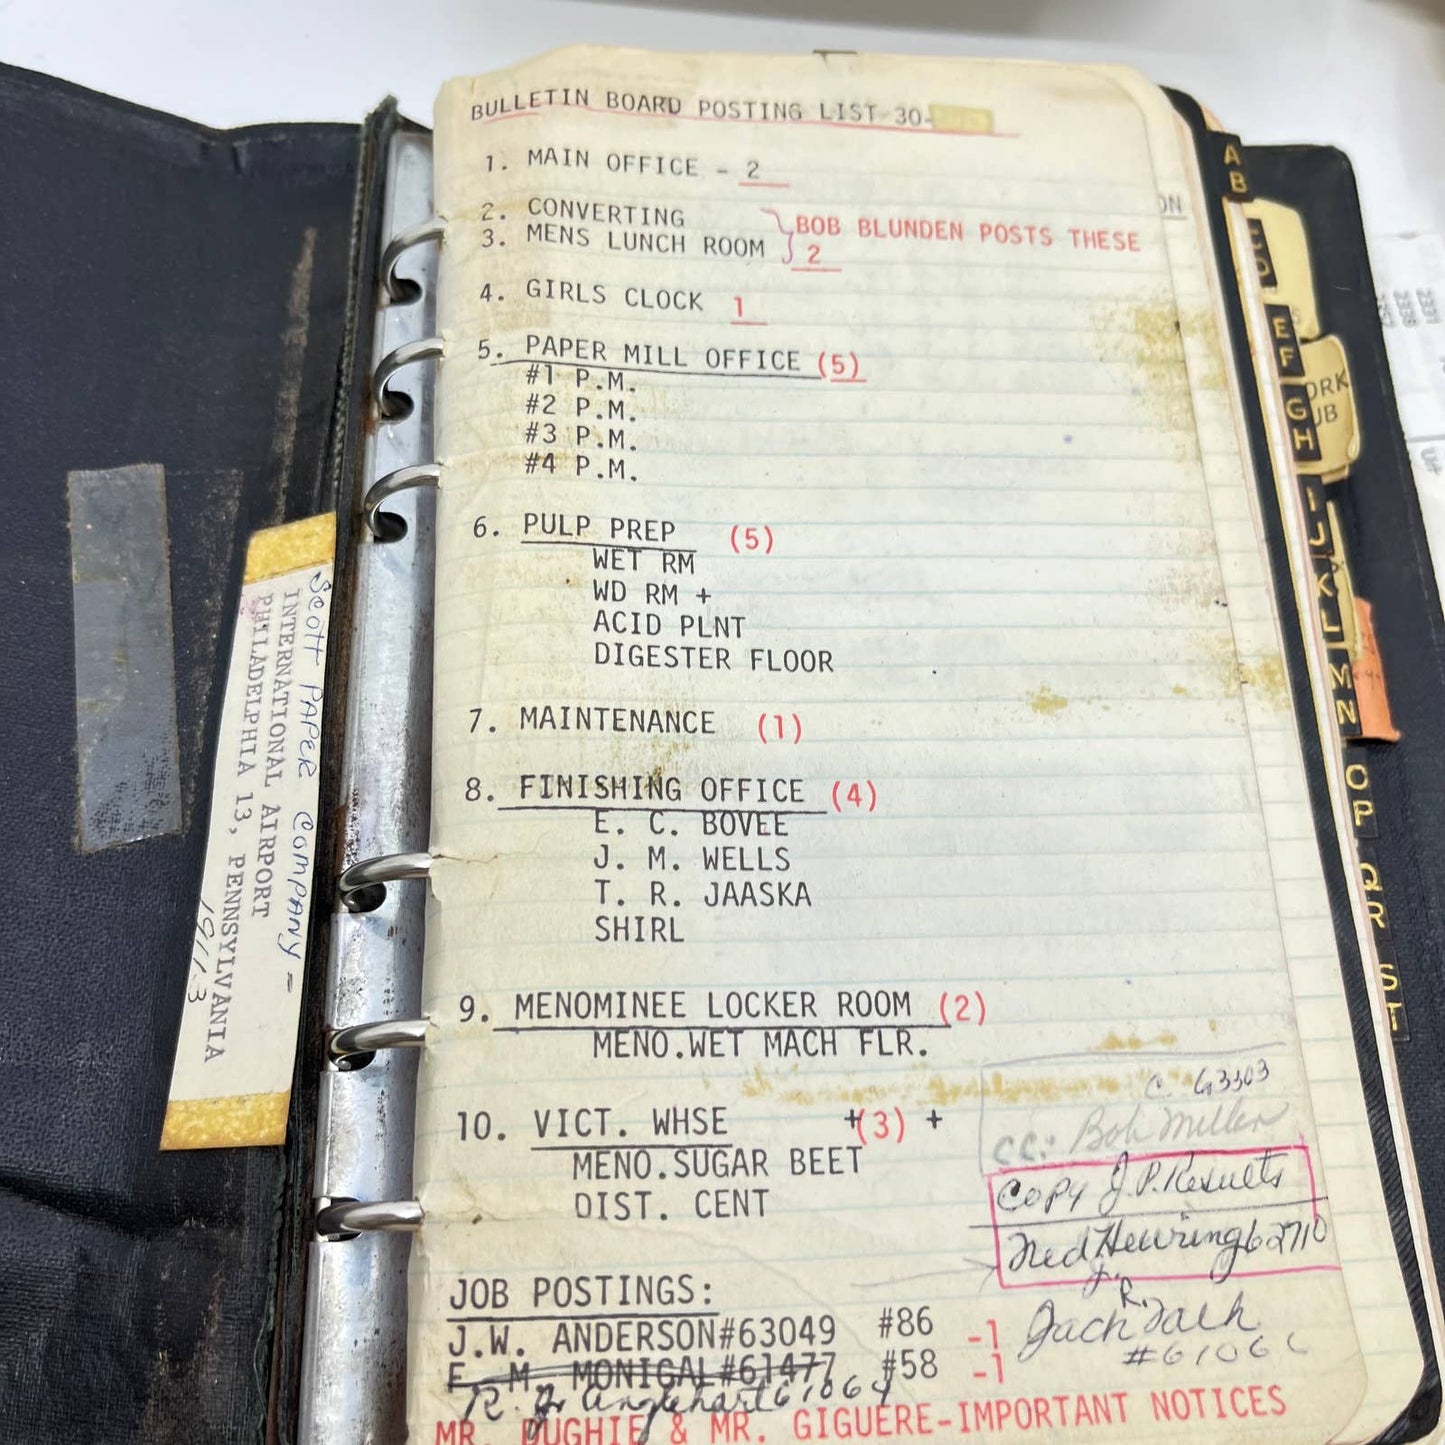 BULLETIN BOARD POSTING LIST-30-
1. MAIN OFFICE - 2
2. CONVERTING
3. MENS LUNCH ROOM
BOB BLUNDEN POSTS THESE
2
4. GIRLS CLOCK 1
5. PAPER MILL OFFICE (5)
#1 P.M.
#2 P.M.
#3 P.M.
#4 P.M.
6. PULP PREP (5)
WET RM
WD RM +
ACID PLNT
DIGESTER FLOOR
7. MAINTENANCE (1)
8. FINISHING OFFICE (4)
E. C. BOVEE
J. M. WELLS
T. R. JAASKA
SHIRL
9. MENOMINEE LOCKER ROOM (2)
MENO.WET MACH FLR.
10. VICT. WHSE +(3) +
MENO.SUGAR BEET
DIST. CENT
C. G3303
CC: Bob Miller
Copy J.P. Results
Ned Hewring 62710
JOB POSTINGS:
J.W. ANDERSON#63049 #86 -1
E. M. MONIGAL#61477 #58 -1
R. Jr Anglehart 61064
J. R.
Jack
#6106
MR. DUGHIE & MR. GIGUERE-IMPORTANT NOTICES
Scott Paper Company -
INTERNATIONAL AIRPORT
PHILADELPHIA 13, PENNSYLVANIA
19113
A
B
D
E
F
G
H
I
J
K
L
M
N
O
P
Q
R
S
T